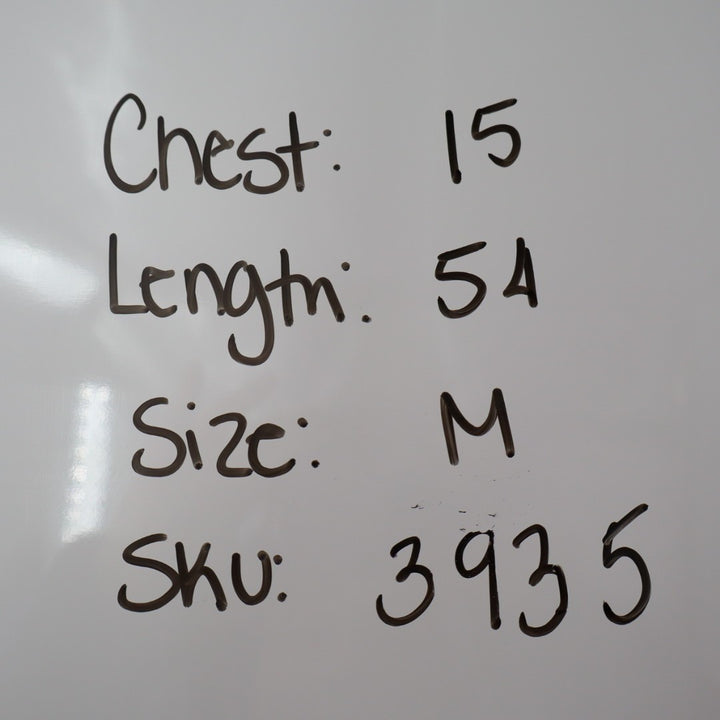 Chest: 15
Length: 54
Size: M
SKU: 3935